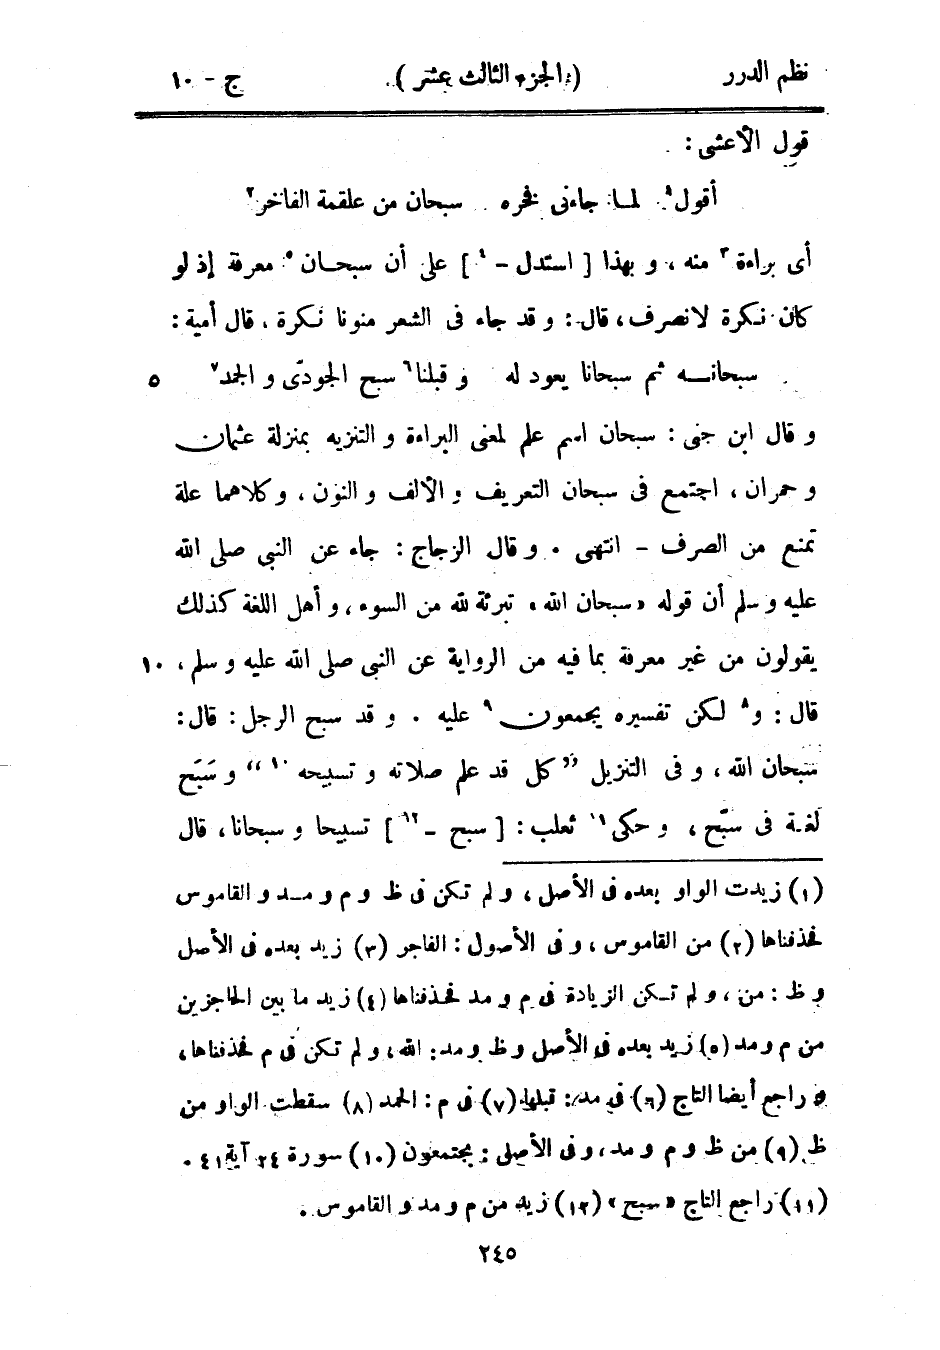 نظم الدرر (الجزء الثالث عشر) ج - ١٠
قول الأعشى:
أقول١ لما جاءنى فخره سبحان من علقمة الفاخر٢
أى براءة٣ منه، و بهذا [ استدل -٤ ] على أن سبحان٥ معرفة إذ لو
كان نكرة لانصرف، قال: و قد جاء فى الشعر منونا نكرة، قال أمية:
سبحانه ثم سبحانا يعود له و قبلنا٦ سبح الجودىّ و الجمد٧ ٥
و قال ابن جنى: سبحان اسم علم لمعنى البراءة و التنزيه بمنزلة عثمان
و حمران، اجتمع فى سبحان التعريف و الألف و النون، و كلاهما علة
تمنع من الصرف - انتهى . و قال الزجاج: جاء عن النبى صلى الله
عليه و سلم أن قوله «سبحان الله» تبرئة لله من السوء، و أهل اللغة كذلك
يقولون من غير معرفة بما فيه من الرواية عن النبى صلى الله عليه و سلم، ١٠
قال: و٨ لكن تفسيره يجمعون٩ عليه . و قد سبح الرجل: قال:
سبحان الله، و فى التنزيل ”كل قد علم صلاته و تسبيحه١٠“ و سَبَح
لغة فى سبّح، و حكى١١ ثعلب: [ سبح -١٢ ] تسبيحا و سبحانا، قال
(١) زيدت الواو بعده فى الأصل، و لم تكن فى ظ و م و مد و القاموس
فحذفناها (٢) من القاموس، و فى الأصول: الفاجر (٣) زيد بعده فى الأصل
و ظ: من، و لم تكن الزيادة فى م و مد فحذفناها (٤) زيد ما بين الحاجزين
من م و مد (٥) زيد بعده فى الأصل و ظ و مد: الله، و لم تكن فى م فحذفناها،
و راجع أيضا التاج (٦) فى مد: قبلها (٧) فى م: الحمد (٨) سقطت الواو من
ظ (٩) من ظ و م و مد، و فى الأصل: يجتمعون (١٠) سورة ٢٤ آية ٤١ .
(١١) راجع التاج «سبح» (١٢) زيد من م و مد و القاموس .
٢٤٥